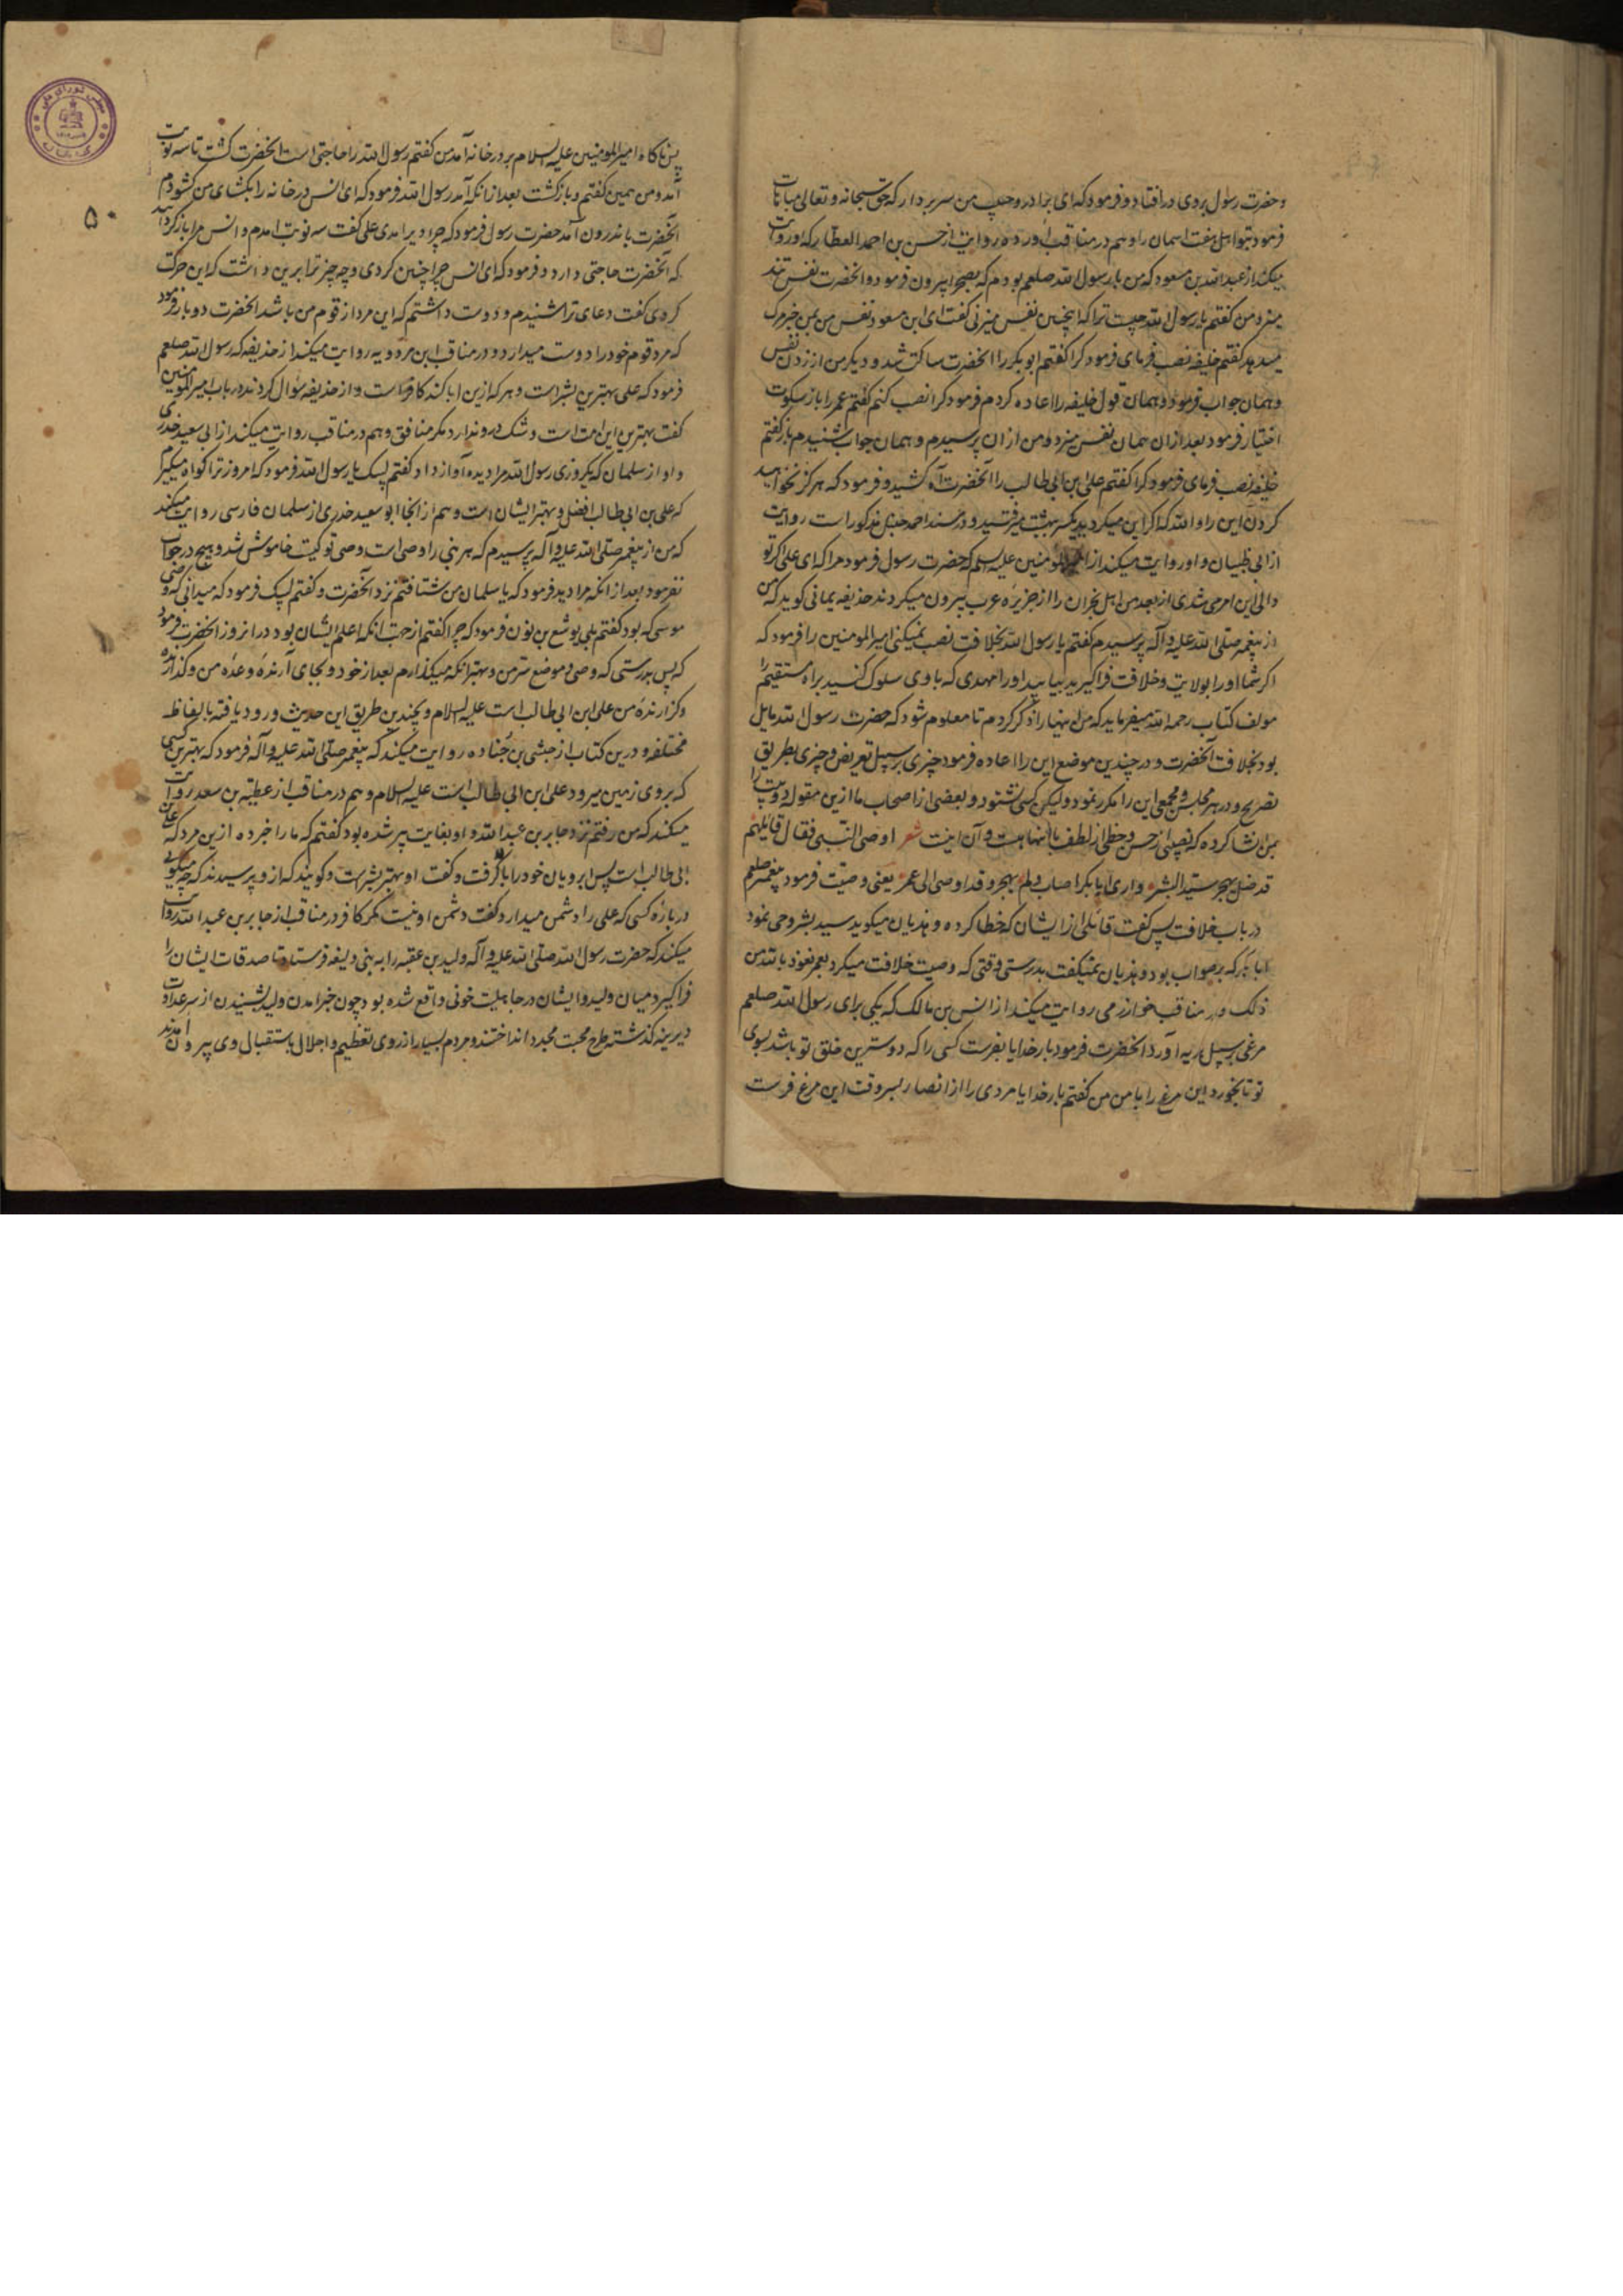 و حضرت رسول بروی در افتاد و فرمود که ای برادر و حبیب من سر بردار که حق سبحانه و تعالی مباهات
فرمود بتو اهل هفت اسمان را و هم در مناقب اورده روایت از حسن بن احمد العطار که او روایت
میکند از عبدالله بن مسعود که من با رسول الله صلعم بودم که بصحرا بیرون فرمود و انحضرت نفس تند
میزد من کفتم یا رسول الله چیست ترا که اینچنین نفس میزنی کفت ای ابن مسعود نفس من بمن خبر مرک
میدهد کفتم خلیفه نصب فرمای فرمود کرا کفتم ابوبکر را انحضرت ساکت شد و دیکر من از زدن نفس
و همان جواب فرمود و همان قول خلیفه را اعاده کردم فرمود کرا نصب کنم کفتم عمر را باز سکوت
اختیار فرمود بعد از ان همان نفس میزد و من از ان پرسیدم و همان جواب شنیدم باز کفتم
خلیفه نصب فرمای فرمود کرا کفتم علی ابن ابی طالب را آنحضرت آه کشید و فرمود که هرکز نخواهید
کردن این را والله که اکر این میکردید یکسر ببهشت میرفتید و در مسند احمد حنبل مذکور است روایت
از ابی ظبیان و او روایت میکند از امیرالمومنین علیه السلم که حضرت رسول فرمود مرا که ای علی اکر تو
والی این امر می شدی از بعد من اهل نجران را از جزیره عرب بیرون میکردند حذیفه یمانی کوید که من
از پیغمبر صلی الله علیه و آله پرسیدم کفتم یا رسول الله بخلافت نصب نمیکنی امیرالمومنین را فرمود که
اکر شما او را بولایت و خلافت فراکیرید بیابید او را مهدی که با وی سلوک کنید براه مستقیم
مولف کتاب رحمه الله میفرماید که من اینها را ذکر کردم تا معلوم شود که حضرت رسول الله مایل
بود بخلافت آنحضرت و در چندین موضع این را اعاده فرمود چیزی بر سبیل تعریض و چیزی بطریق
تصریح و در هر مجلس و مجمعی این را مکرر نمود ولیکن کسی نشنود و بعضی از اصحاب ما ازین مقوله دو بیت را
بمن انشا کرده که نصیبی از حسن و حظی از لطف با انهاست و آن اینست شعر اوصی النبی فقال قایلهم
قد ضل یهجر سید البشر و اری ابا بکر اصاب و لم یهجر و قد اوصی الی عمر یعنی وصیت فرمود پیغمبر صلعم
در باب خلافت پس کفت قائلی از ایشان که خطا کرده و هذیان میکوید سید بشر و حی نمود
ابا بکر که بر صواب بود و هذیان نمیکفت بدرستی وقتی که وصیت خلافت میکرد بعمر نعوذ بالله من
ذلک و در مناقب خوارزمی روایت میکند از انس بن مالک که یکی برای رسول الله صلعم
مرغی بر سبیل هدیه آورد انحضرت فرمود بار خدایا بفرست کسی را که دوسترین خلق تو باشد بسوی
تو تا بخورد این مرغ را با من من کفتم بار خدایا مردی را از انصار بسر وقت این مرغ فرست
پس ناکاه امیرالمومنین علیه السلام بر در خانه آمد من کفتم رسول الله را حاجتی است انحضرت کشت تا سه نوبت
آمد و من همین کفتم و باز کشت بعد از انکه آمد رسول الله فرمود که ای انس در خانه را بکشای من کشودم
انحضرت باندرون آمد حضرت رسول فرمود که چرا دیر امدی علی کفت سه نوبت امدم و انس مرا باز کردانید
که آنحضرت حاجتی دارد و فرمود که ای انس چرا چنین کردی و چه چیز ترا برین داشت که این حرکت
کردی کفت دعای ترا شنیدم و دوست داشتم که این مرد از قوم من باشد انحضرت دو بار فرمود
که مرد قوم خود را دوست میدارد و در مناقب ابن مردویه روایت میکند از حذیفه که رسول الله صلعم
فرمود که علی بهترین بشر است و هر که ازین ابا کند کافر است و از حذیفه سوال کردند در باب امیرالمومنین
کفت بهترین این امت است و شک در و ندارد مکر منافق و هم در مناقب روایت میکند از ابی سعید خدری
و او از سلمان که یکروزی رسول الله مرا دیده آواز داد کفتم لبیک یا رسول الله فرمود که امروز ترا کواه میکیرم
که علی بن ابی طالب افضل و بهتر ایشان است و هم از انجا ابو سعید خدری از سلمان فارسی روایت میکند
که من از پیغمبر صلی الله علیه و آله پرسیدم که هر نبی را وصی است وصی تو کیست خاموش شد و هیچ در جواب
نفرمود بعد از انکه مرا دید فرمود که یا سلمان من شتافتم نزد آنحضرت و کفتم لبیک فرمود که میدانی که وصی
موسی که بود کفتم بلی یوشع بن نون فرمود که چرا کفتم از جهت انکه اعلم ایشان بود در انروز انحضرت فرمود
که پس بدرستی که وصی و موضع سر من و بهتر انکه میکذارم بعد از خود و بجای آرنده وعده من و کذارنده
و کزارنده من علی ابن ابی طالب است علیه السلام و بچندین طریق این حدیث ورود یافته بالفاظ
مختلفه و درین کتاب از حبشی بن جناده روایت میکند که پیغمبر صلی الله علیه و آله فرمود که بهترین کسی
که بروی زمین میرود علی ابن ابی طالب است علیه السلام و هم در مناقب از عطیة بن سعد روایت
میکند که من رفتم نزد جابر بن عبدالله و او بغایت پیر شده بود کفتم که ما را خبر ده ازین مرد که علی بن
ابی طالب است پس ابرویان خود را بالا کرفت و کفت او بهتر بشر است و کویند که از و پرسیدند که چه میکویی
در باره کسی که علی را دشمن میدارد کفت دشمن او نیست مکر کافر در مناقب از جابر بن عبدالله روایت
میکند که حضرت رسول الله صلی الله علیه و آله ولید بن عقبه را به بنی ولیعه فرستاد تا صدقات ایشان را
فراکیرد میان ولید و ایشان در جاهلیت خونی واقع شده بود چون خبر امدن ولید بشنیدن از سر عداوت
دیرینه کذشته طرح محبت مجدد انداختند و مردم بسیار از روی تعظیم و اجلال باستقبال وی بیرون امدند
۵۰